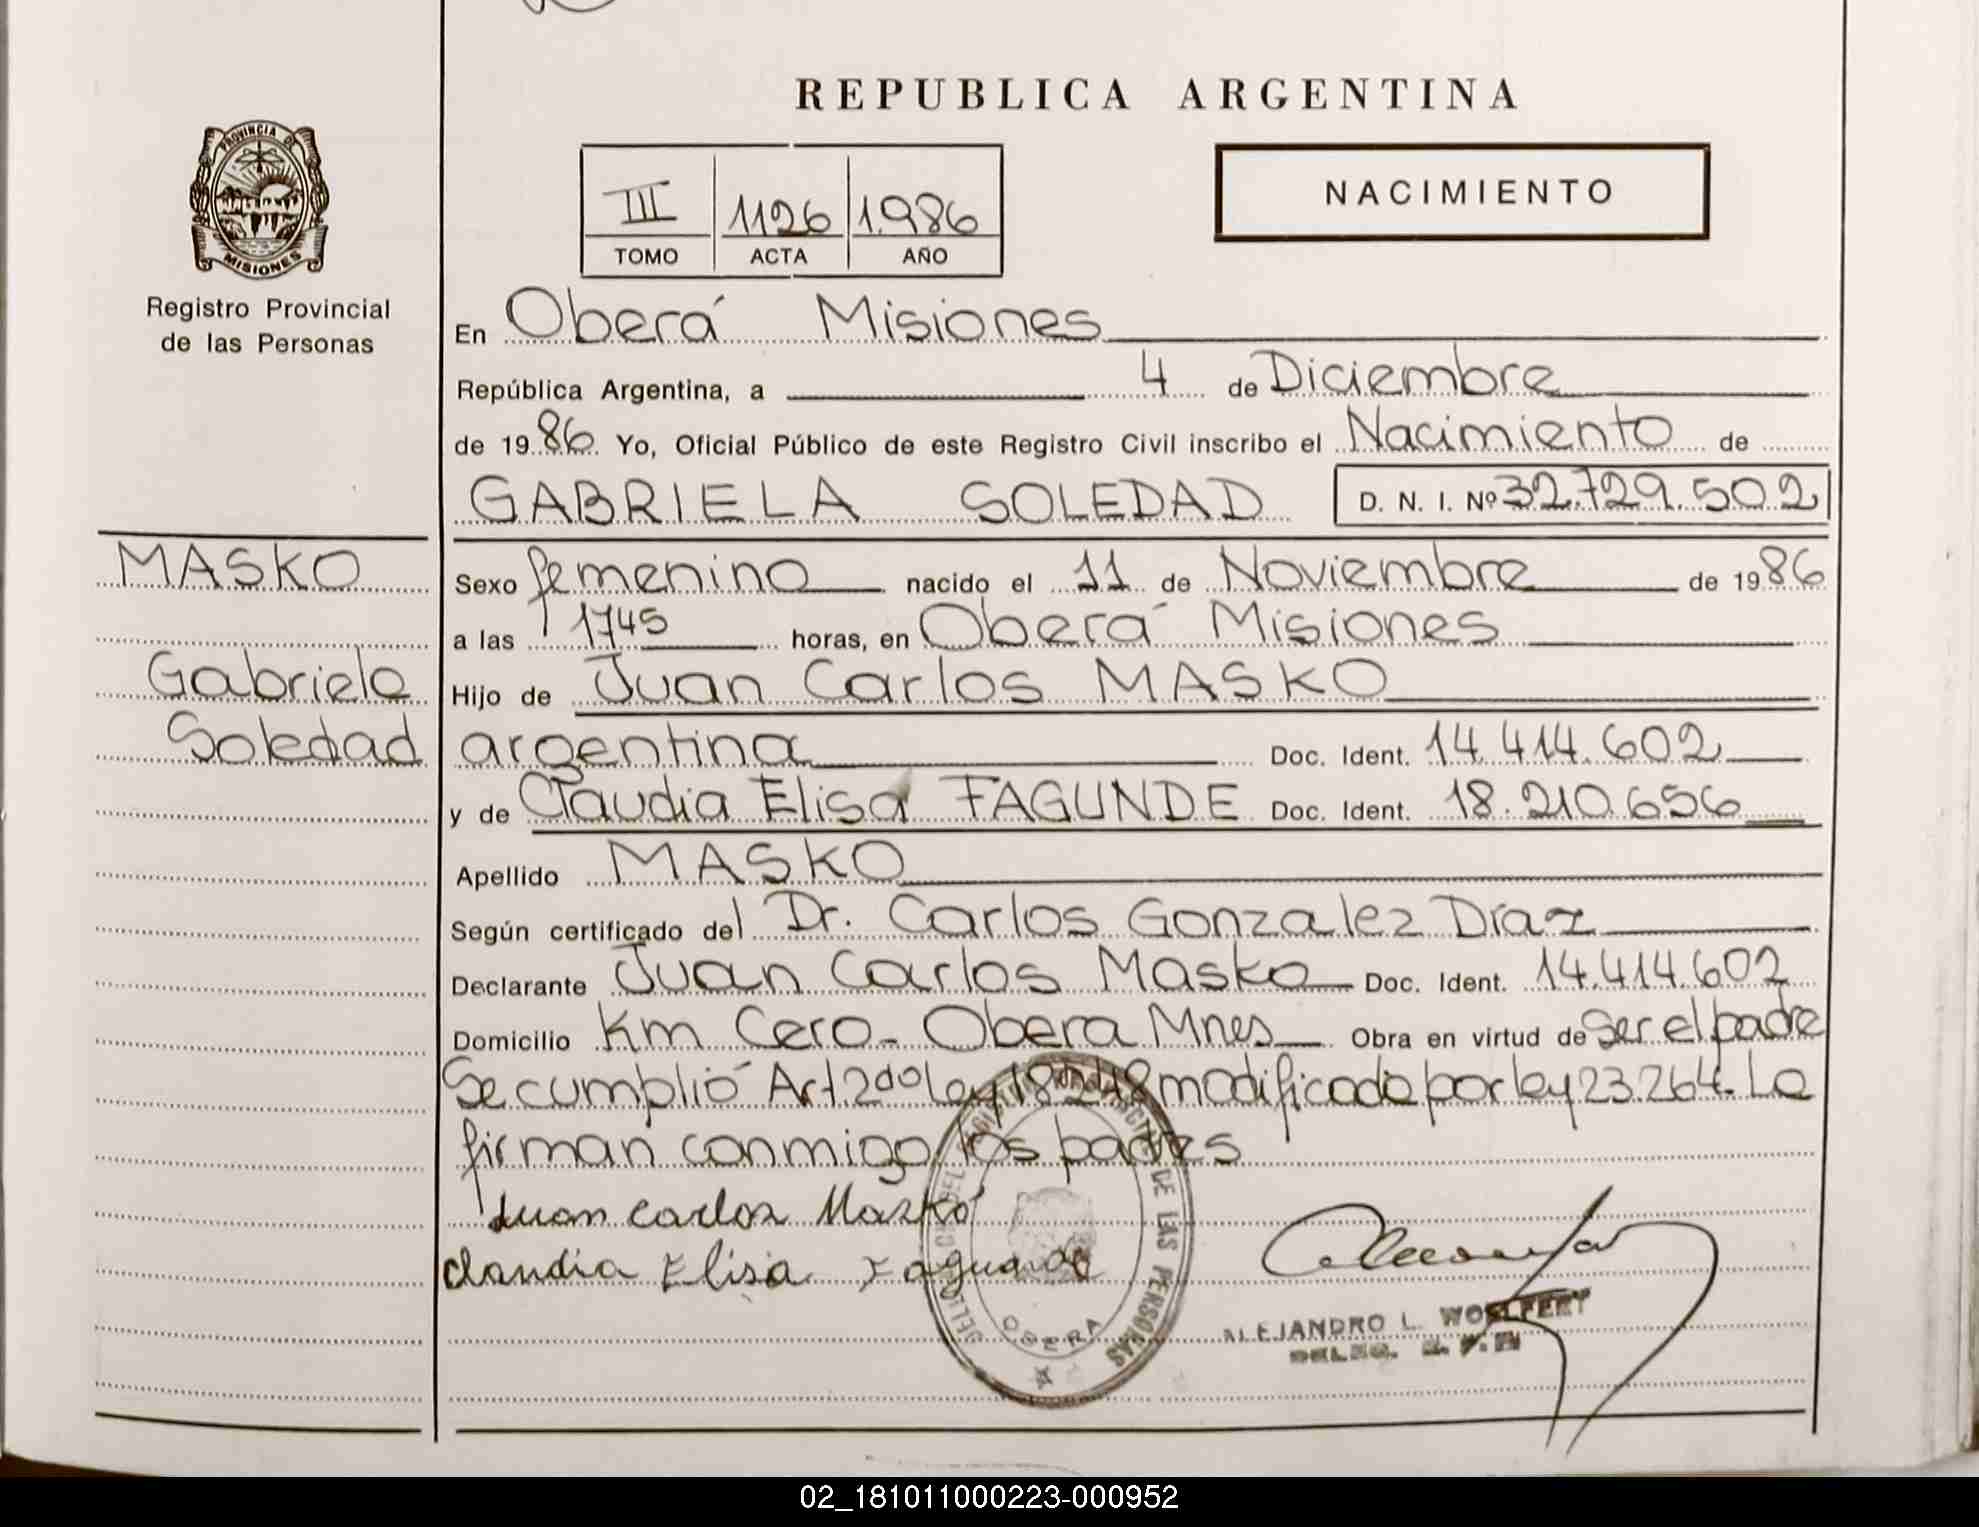 REPUBLICA ARGENTINA
PROVINCIA DE
MISIONES
Registro Provincial
de las Personas
III 1126 1.986
TOMO ACTA AÑO
NACIMIENTO
En Oberá Misiones
República Argentina, a 4 de Diciembre
de 1986 Yo, Oficial Público de este Registro Civil inscribo el Nacimiento de
GABRIELA SOLEDAD D. N. I. Nº 32.729.502
MASKO
Gabriela
Soledad
Sexo femenino nacido el 11 de Noviembre de 1986
a las 1745 horas, en Oberá Misiones
Hijo de Juan Carlos MASKO
argentina Doc. Ident. 14.414.602
y de Claudia Elisa FAGUNDE Doc. Ident. 18.210.656
Apellido MASKO
Según certificado del Dr. Carlos Gonzalez Diaz
Declarante Juan Carlos Masko Doc. Ident. 14.414.602
Domicilio Km Cero- Obera Mnes Obra en virtud de Ser el padre
Se cumplió Art. 2do ley 18248 modificado por ley 23.264. Lo
firman conmigo los padres
Juan Carlos Masko
Claudia Elisa Fagunde
DE LAS PERSONAS
OBERA
ALEJANDRO L. WOELFERT